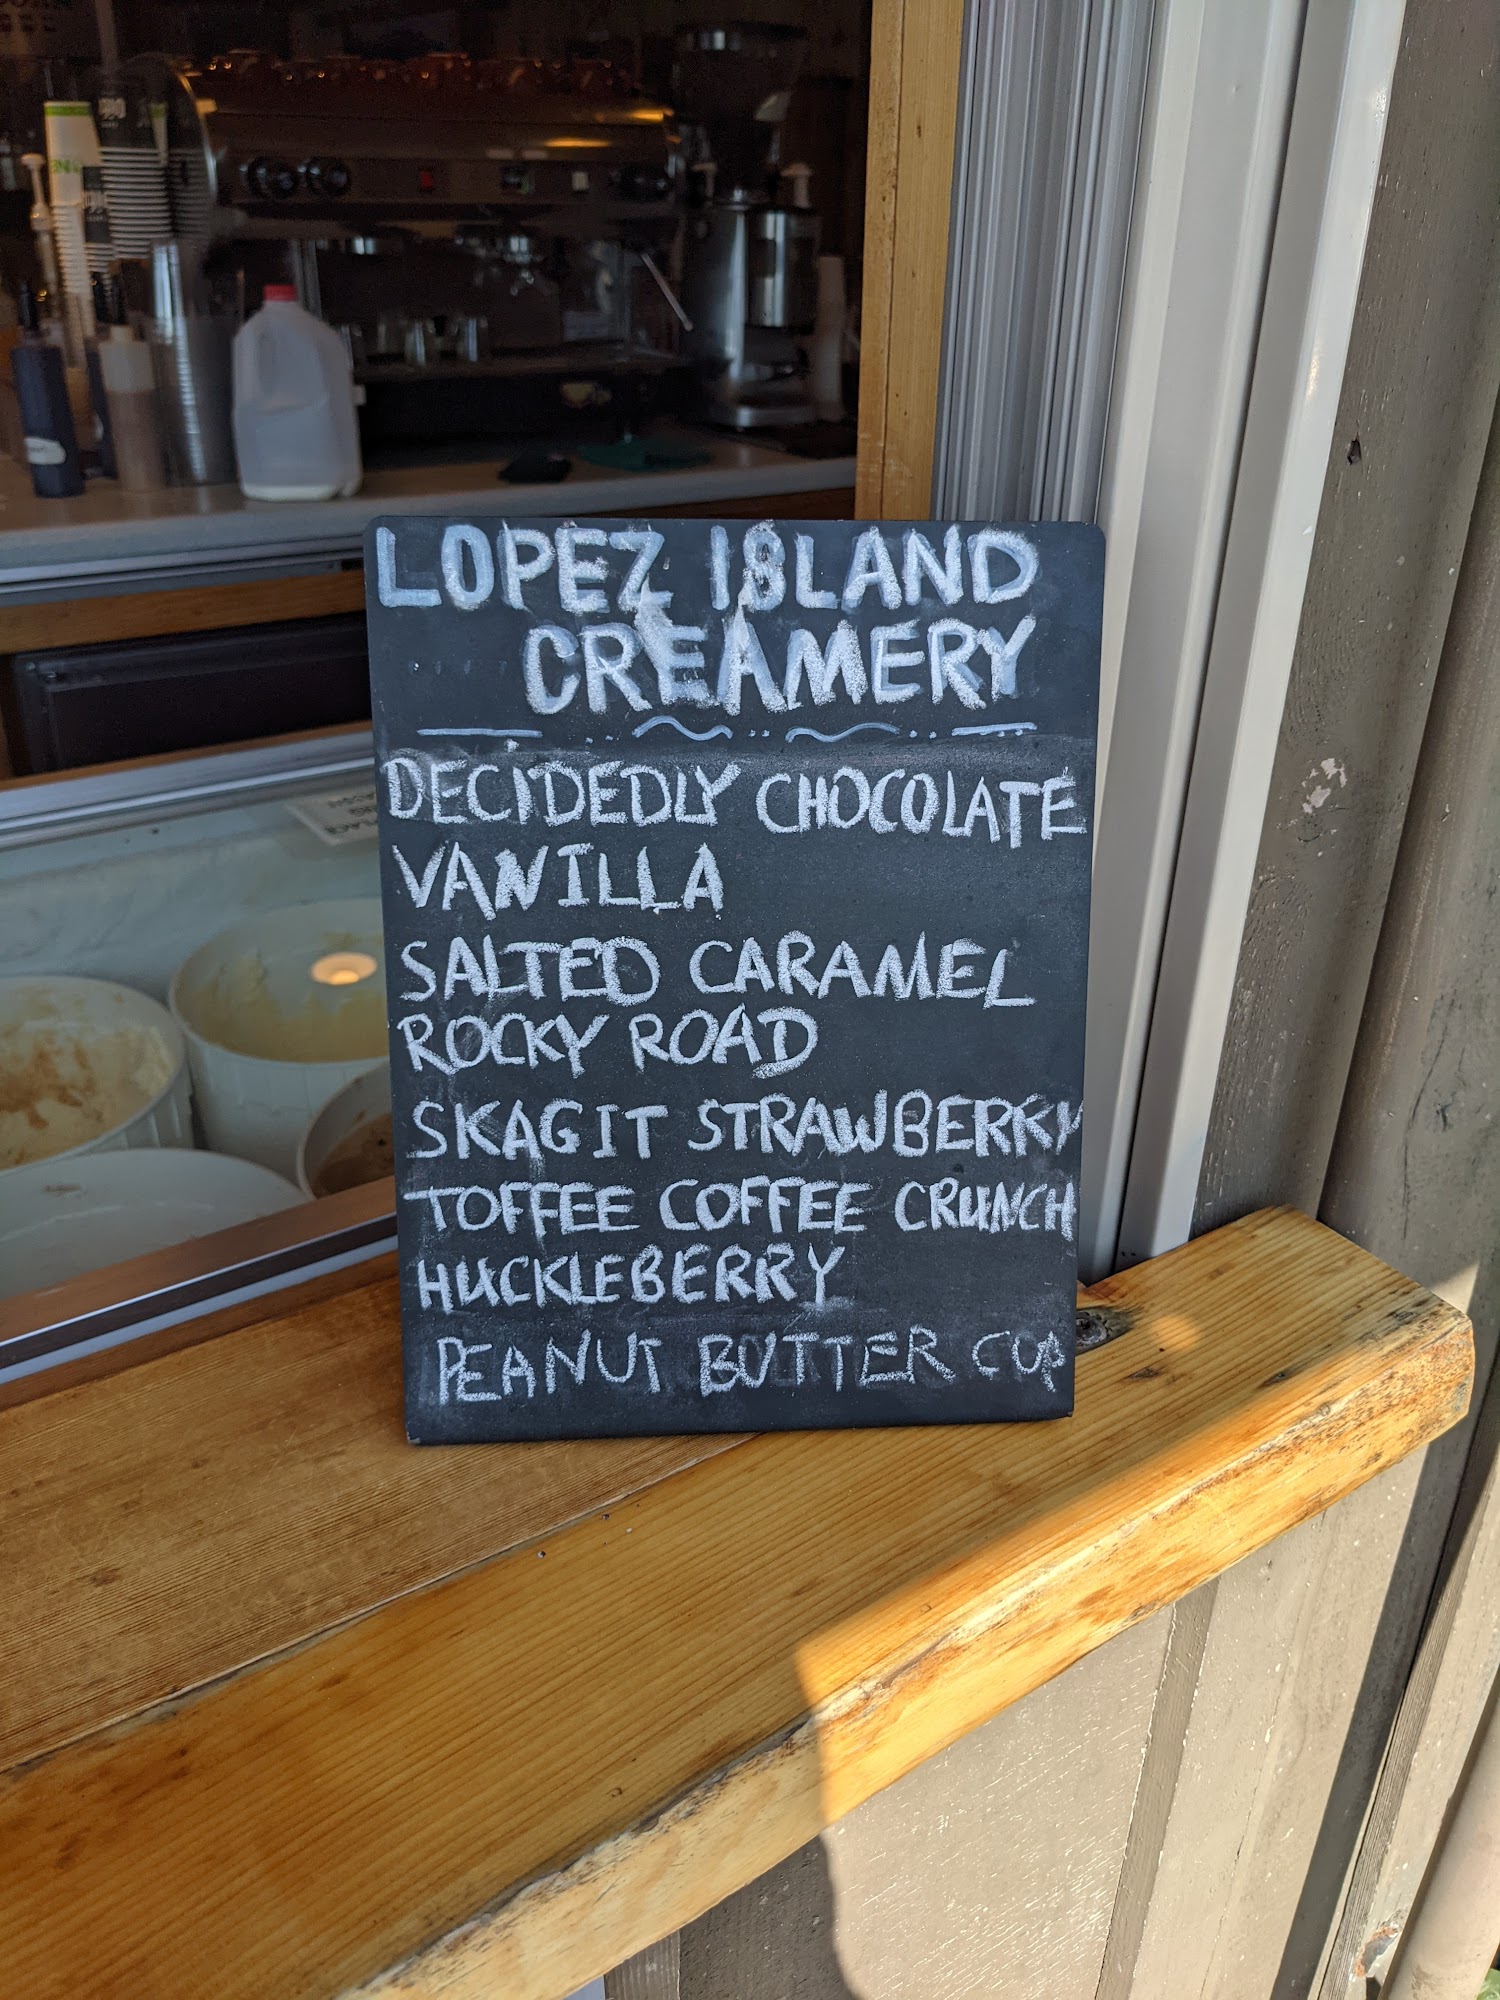 LOPEZ ISLAND
CREAMERY
DECIDEDLY CHOCOLATE
VANILLA
SALTED CARAMEL
ROCKY ROAD
SKAGIT STRAWBERRY
TOFFEE COFFEE CRUNCH
HUCKLEBERRY
PEANUT BUTTER CUP